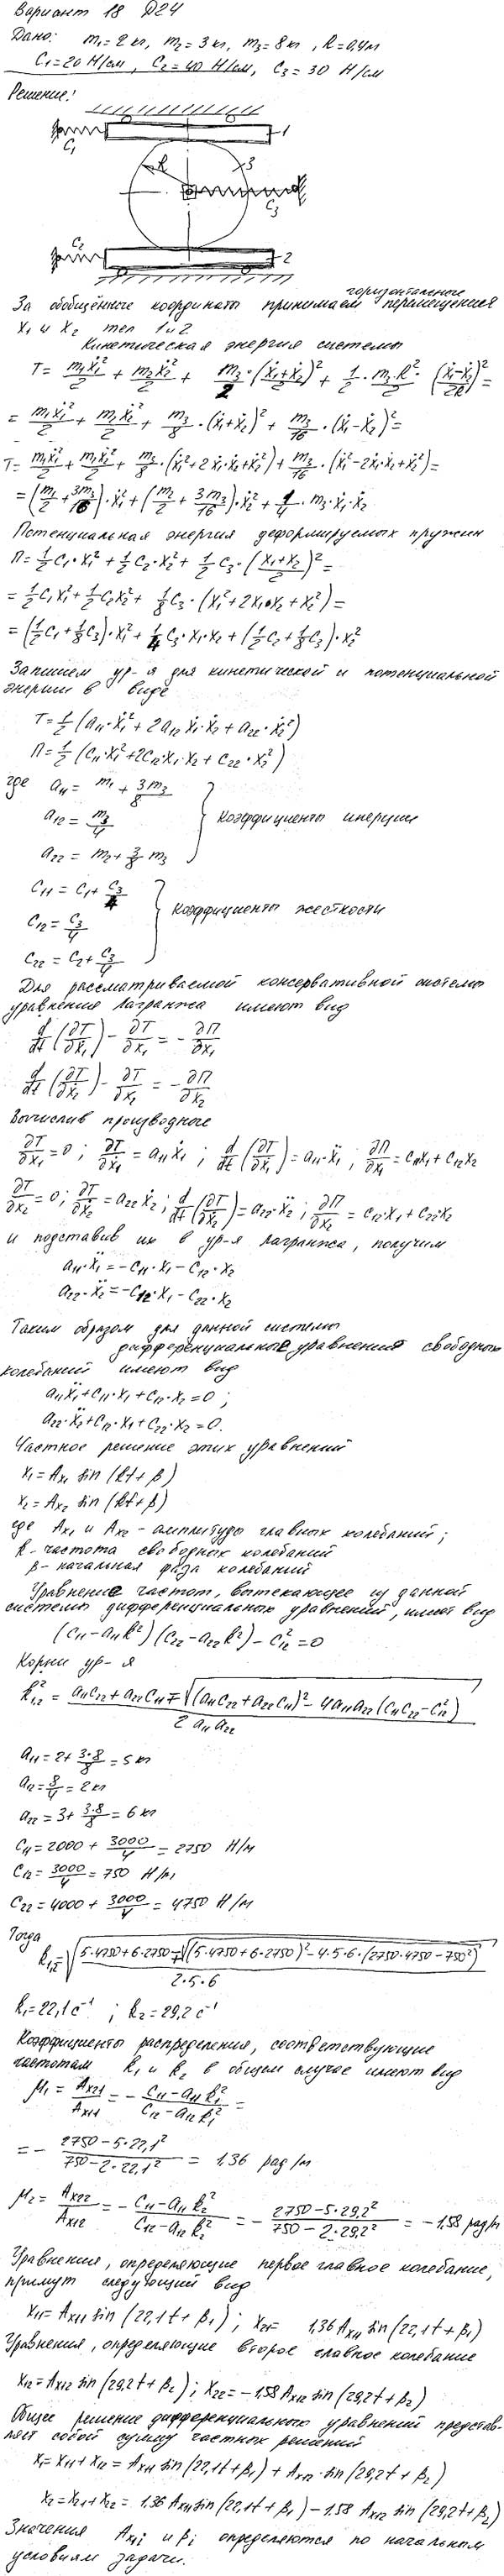 Вариант 18 Д24
Дано: m₁ = 2 кг, m₂ = 3 кг, m₃ = 8 кг, R = 0,4м
C₁ = 20 Н/см, C₂ = 40 Н/см, C₃ = 30 Н/см
Решение:
C₁ 1
R 3
C₃
C₂ 2
За обобщённые координаты принимаем горизонтальные перемещения
x₁ и x₂ тел 1 и 2
Кинетическая энергия системы
T = m₁ẋ₁²/2 + m₂ẋ₂²/2 + m₃/2·(ẋ₁+ẋ₂/2)² + 1/2·m₃·R²/2·(ẋ₁-ẋ₂/2R)² =
= m₁ẋ₁²/2 + m₂ẋ₂²/2 + m₃/8·(ẋ₁+ẋ₂)² + m₃/16·(ẋ₁-ẋ₂)² =
T = m₁ẋ₁²/2 + m₂ẋ₂²/2 + m₃/8·(ẋ₁²+2ẋ₁ẋ₂+ẋ₂²) + m₃/16·(ẋ₁²-2ẋ₁ẋ₂+ẋ₂²) =
= (m₁/2 + 3m₃/16)·ẋ₁² + (m₂/2 + 3m₃/16)·ẋ₂² + 1/4·m₃·ẋ₁·ẋ₂
Потенциальная энергия деформируемых пружин
П = 1/2 C₁·x₁² + 1/2 C₂·x₂² + 1/2 C₃·(x₁+x₂/2)² =
= 1/2 C₁x₁² + 1/2 C₂x₂² + 1/8 C₃·(x₁²+2x₁·x₂+x₂²) =
= (1/2 C₁ + 1/8 C₃)·x₁² + 1/4 C₃·x₁·x₂ + (1/2 C₂ + 1/8 C₃)·x₂²
Запишем ур-я для кинетической и потенциальной
энергии в виде
T = 1/2 (a₁₁·ẋ₁² + 2a₁₂ẋ₁ẋ₂ + a₂₂·ẋ₂²)
П = 1/2 (C₁₁·x₁² + 2C₁₂x₁x₂ + C₂₂·x₂²)
где a₁₁ = m₁ + 3m₃/8
a₁₂ = m₃/4 Коэффициенты инерции
a₂₂ = m₂ + 3/8 m₃
C₁₁ = C₁ + C₃/4
C₁₂ = C₃/4 Коэффициенты жесткости
C₂₂ = C₂ + C₃/4
Для рассматриваемой консервативной системы
уравнения Лагранжа имеют вид
d/dt(∂T/∂ẋ₁) - ∂T/∂x₁ = - ∂П/∂x₁
d/dt(∂T/∂ẋ₂) - ∂T/∂x₂ = - ∂П/∂x₂
Вычислив производные
∂T/∂x₁ = 0; ∂T/∂ẋ₁ = a₁₁ẋ₁; d/dt(∂T/∂ẋ₁) = a₁₁·ẍ₁; ∂П/∂x₁ = C₁₁x₁ + C₁₂x₂
∂T/∂x₂ = 0; ∂T/∂ẋ₂ = a₂₂ẋ₂; d/dt(∂T/∂ẋ₂) = a₂₂·ẍ₂; ∂П/∂x₂ = C₁₂·x₁ + C₂₂·x₂
и подставив их в ур-я Лагранжа, получим
a₁₁·ẍ₁ = -C₁₁·x₁ - C₁₂·x₂
a₂₂·ẍ₂ = -C₁₂·x₁ - C₂₂·x₂
Таким образом для данной системы
дифференциальные уравнения свободных
колебаний имеют вид
a₁₁ẍ₁ + C₁₁·x₁ + C₁₂·x₂ = 0;
a₂₂·ẍ₂ + C₁₂·x₁ + C₂₂·x₂ = 0.
Частное решение этих уравнений
x₁ = Aₓ₁ sin (kt + β)
x₂ = Aₓ₂ sin (kt + β)
где Aₓ₁ и Aₓ₂ - амплитуды главных колебаний;
k - частота свободных колебаний
β - начальная фаза колебаний
Уравнение частот, вытекающее из данной
системы дифференциальных уравнений, имеет вид
(C₁₁ - a₁₁k²)(C₂₂ - a₂₂k²) - C₁₂² = 0
Корни ур-я
k²₁,₂ = a₁₁C₂₂ + a₂₂C₁₁ ∓ √(a₁₁C₂₂ + a₂₂C₁₁)² - 4a₁₁a₂₂(C₁₁C₂₂ - C₁₂²) / 2a₁₁a₂₂
a₁₁ = 2 + 3·8/8 = 5 кг
a₁₂ = 8/4 = 2 кг
a₂₂ = 3 + 3·8/8 = 6 кг
C₁₁ = 2000 + 3000/4 = 2750 Н/м
C₁₂ = 3000/4 = 750 Н/м
C₂₂ = 4000 + 3000/4 = 4750 Н/м
Тогда
k₁,₂ = √5·4750 + 6·2750 ∓ √(5·4750 + 6·2750)² - 4·5·6·(2750·4750 - 750²) / 2·5·6
k₁ = 22,1 с⁻¹; k₂ = 29,2 с⁻¹
Коэффициенты распределения, соответствующие
частотам k₁ и k₂ в общем случае имеют вид
μ₁ = Aₓ₂₁/Aₓ₁₁ = - C₁₁ - a₁₁k₁²/C₁₂ - a₁₂k₁² =
= - 2750 - 5·22,1²/750 - 2·22,1² = 1,36 рад/м
μ₂ = Aₓ₂₂/Aₓ₁₂ = - C₁₁ - a₁₁k₂²/C₁₂ - a₁₂k₂² = - 2750 - 5·29,2²/750 - 2·29,2² = -1,58 рад/м
Уравнения, определяющие первое главное колебание,
примут следующий вид
x₁₁ = Aₓ₁₁ sin (22,1t + β₁); x₂₁ = 1,36 Aₓ₁₁ sin (22,1t + β₁)
Уравнения, определяющие второе главное колебание
x₁₂ = Aₓ₁₂ sin (29,2t + β₂); x₂₂ = -1,58 Aₓ₁₂ sin (29,2t + β₂)
Общее решение дифференциальных уравнений представ-
ляет собой сумму частных решений
x₁ = x₁₁ + x₁₂ = Aₓ₁₁ sin (22,1t + β₁) + Aₓ₁₂·sin (29,2t + β₂)
x₂ = x₂₁ + x₂₂ = 1,36 Aₓ₁₁ sin (22,1t + β₁) - 1,58 Aₓ₁₂ sin (29,2t + β₂)
Значения Aₓ₁ᵢ и βᵢ определяются по начальным
условиям задачи.